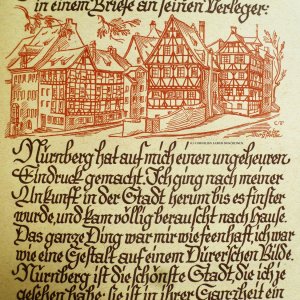 in einem Briefe an seinen Verleger:
Nürnberg hat auf mich einen ungeheuren
Eindruck gemacht. Ich ging nach meiner
Ankunft in der Stadt herum bis es finster
wurde, und kam völlig berauscht nach Hause.
Das ganze Ding war mir wie feenhaft, ich war
wie eine Gestalt auf einem Dürerschen Bilde.
Nürnberg ist die schönste Stadt, die ich je
gesehen habe; sie ist in ihrer Ganzheit ein